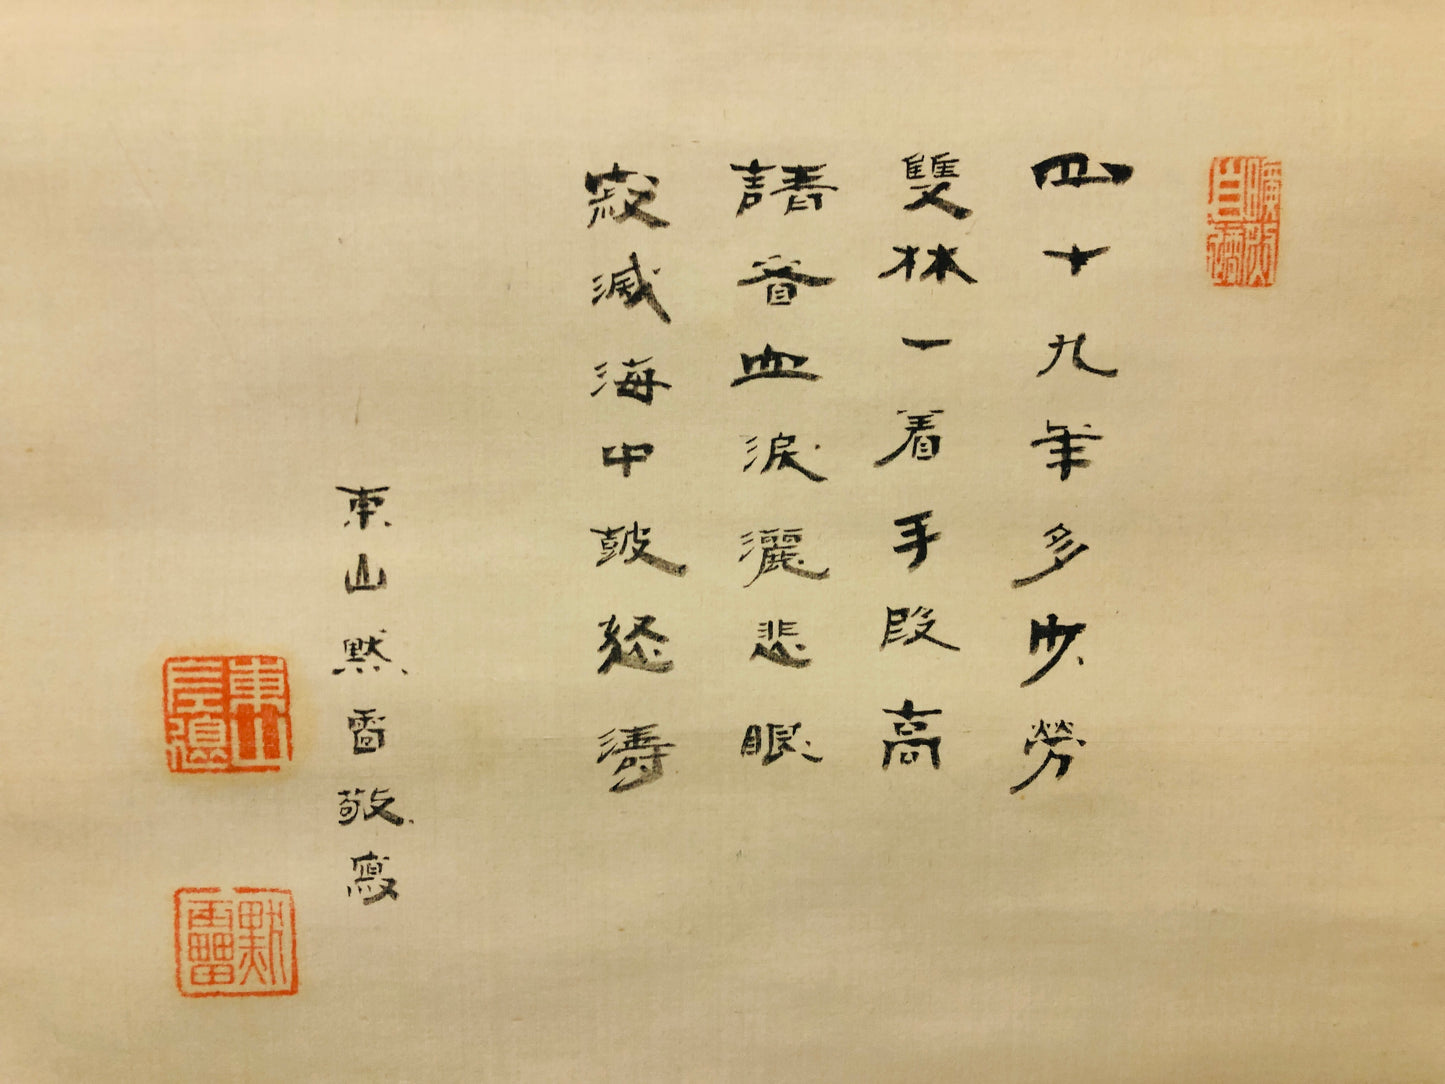 四十九年多少勞
雙林一着手段高
請看血淚灑悲眼
寂滅海中皷怒濤
東山黙雷敬寫
東山左邊
黙雷